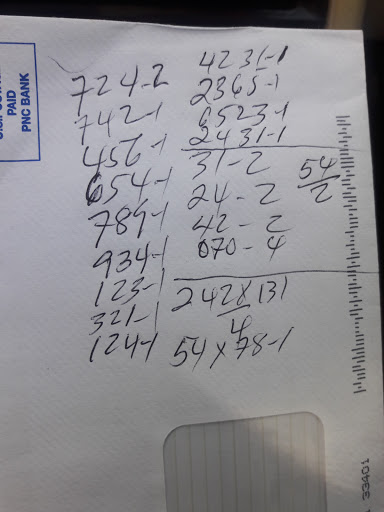 PAID
PNC BANK
724-2
742-1
456-1
654-1
789-1
934-1
123-1
321-1
124-1
4231-1
2365-1
6523-1
2431-1
31-2
24-2
42-2
070-4
54
2
242 x 131
4
54 x 78-1
33401